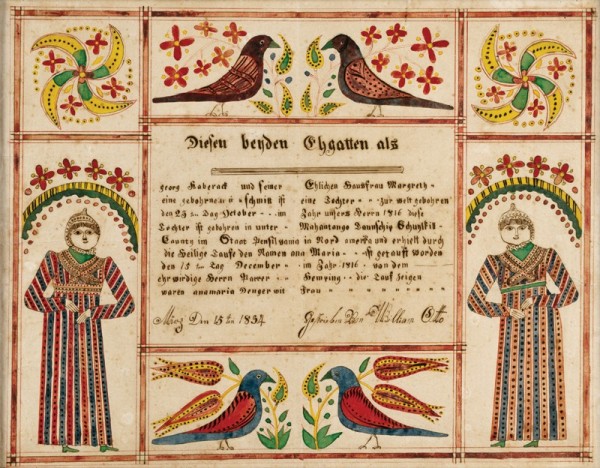 Diesen beyden Ehgatten als
georg Haberack und seiner Ehlichen Hausfrau Margreth -
eine gebohrne schmit ist eine Tochter - - zur welt gebohren
den 23 ten Dag October - - im Jahr unsers Herrn 1816 diese
Tochter ist gebohren in unter Mahantango Taunschip Schuylkil
County im Staat Pensilvania in Nord amerika und erhielt durch
die Heilige Taufe den Namen ana Maria - - ist getauft worden
den ten Dag December - im Jahr 1816 - von dem -
ehrwirdige Herrn Pfarrer Hemping - die Tauf Zeigen
waren anamaria Denger wit Frau
Merz Den 15 ten 1834 Geschrieben Von William Otto